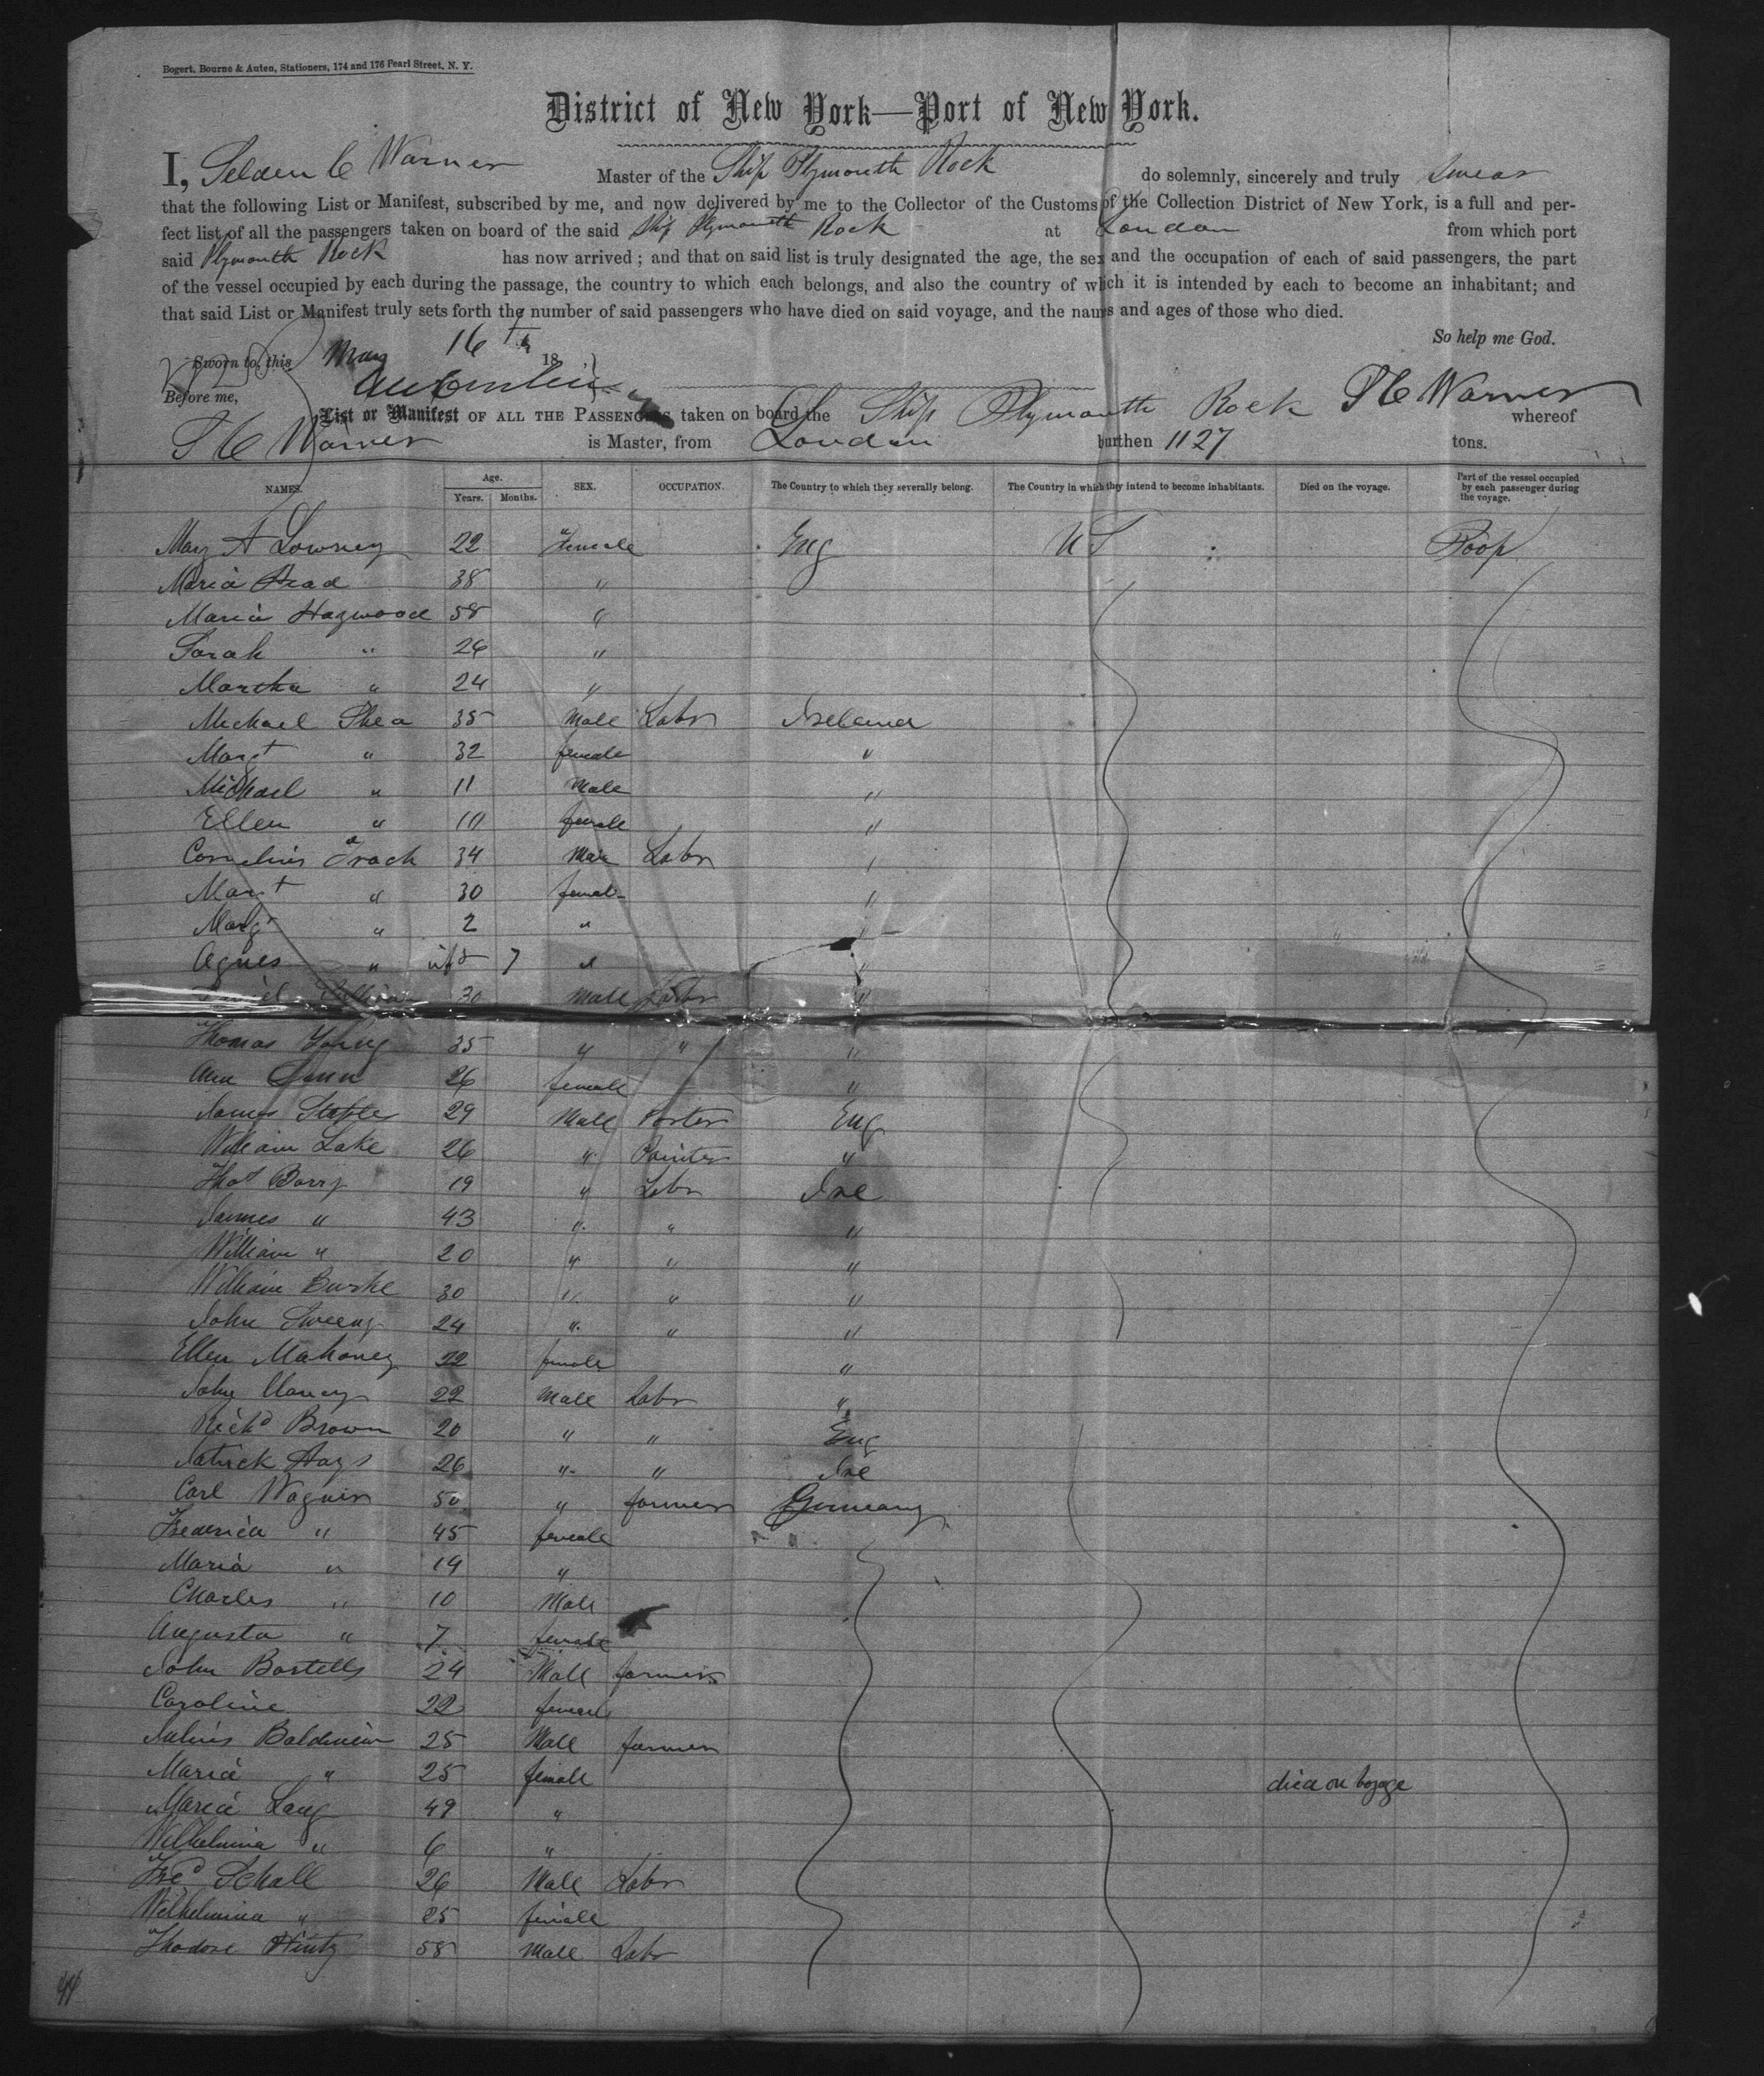 Bogert, Bourne & Auten, Stationers, 174 and 176 Pearl Street, N. Y.
District of New York—Port of New York.
I, Selden C Warner Master of the Ship Plymouth Rock do solemnly, sincerely and truly swear
that the following List or Manifest, subscribed by me, and now delivered by me to the Collector of the Customs of the Collection District of New York, is a full and per-
fect list of all the passengers taken on board of the said Ship Plymouth Rock at London from which port
said Plymouth Rock has now arrived; and that on said list is truly designated the age, the sex and the occupation of each of said passengers, the part
of the vessel occupied by each during the passage, the country to which each belongs, and also the country of which it is intended by each to become an inhabitant; and
that said List or Manifest truly sets forth the number of said passengers who have died on said voyage, and the names and ages of those who died.
So help me God.
Sworn to, this May 16th 18
Before me, S C Warner
List or Manifest OF ALL THE PASSENGERS taken on board the Ship Plymouth Rock whereof
S C Warner is Master, from London burthen 1127 tons.
NAMES. Age. Years. Months. SEX. OCCUPATION. The Country to which they severally belong. The Country in which they intend to become inhabitants. Died on the voyage. Part of the vessel occupied by each passenger during the voyage.
Mary A Lowney 22 Female Eng US Poop
Maria Head 38 "
Maria Hagwood 58 "
Sarah " 26 "
Martha " 24 "
Michael Shea 35 Male Labr Ireland
Margt " 32 female "
Michael " 11 Male "
Ellen " 10 female "
Cornelius 34 Male Labr "
Margt " 30 female "
Margt " 2 " "
Agnes " inft 7 " "
Daniel 30 Male Labr "
Thomas Young 35 " " "
Ann 26 female "
James Staple 29 Male Porter Eng
William Lake 26 " Painter "
Thos Barry 19 " Labr Ire
James " 43 " " "
William " 20 " " "
William Burke 30 " " "
John Sweeny 24 " " "
Ellen Mahoney 22 female "
John Clancy 22 Male Labr "
Richd Brown 20 " " Eng
Patrick Hays 26 " " Ire
Carl Wagner 50 " farmer Germany
Frederica " 45 female
Maria " 19 "
Charles " 10 Male
Augusta " 7 female
John Bartells 24 Male farmer
Caroline 22 female
Julius Baldwein 25 Male farmer
Maria " 25 female died on voyage
Maria Lang 49 "
Wilhelmina " 6 "
Fred Schall 26 Male Labr
Wilhelmina " 25 female
Thodore Hintz 58 Male Labr